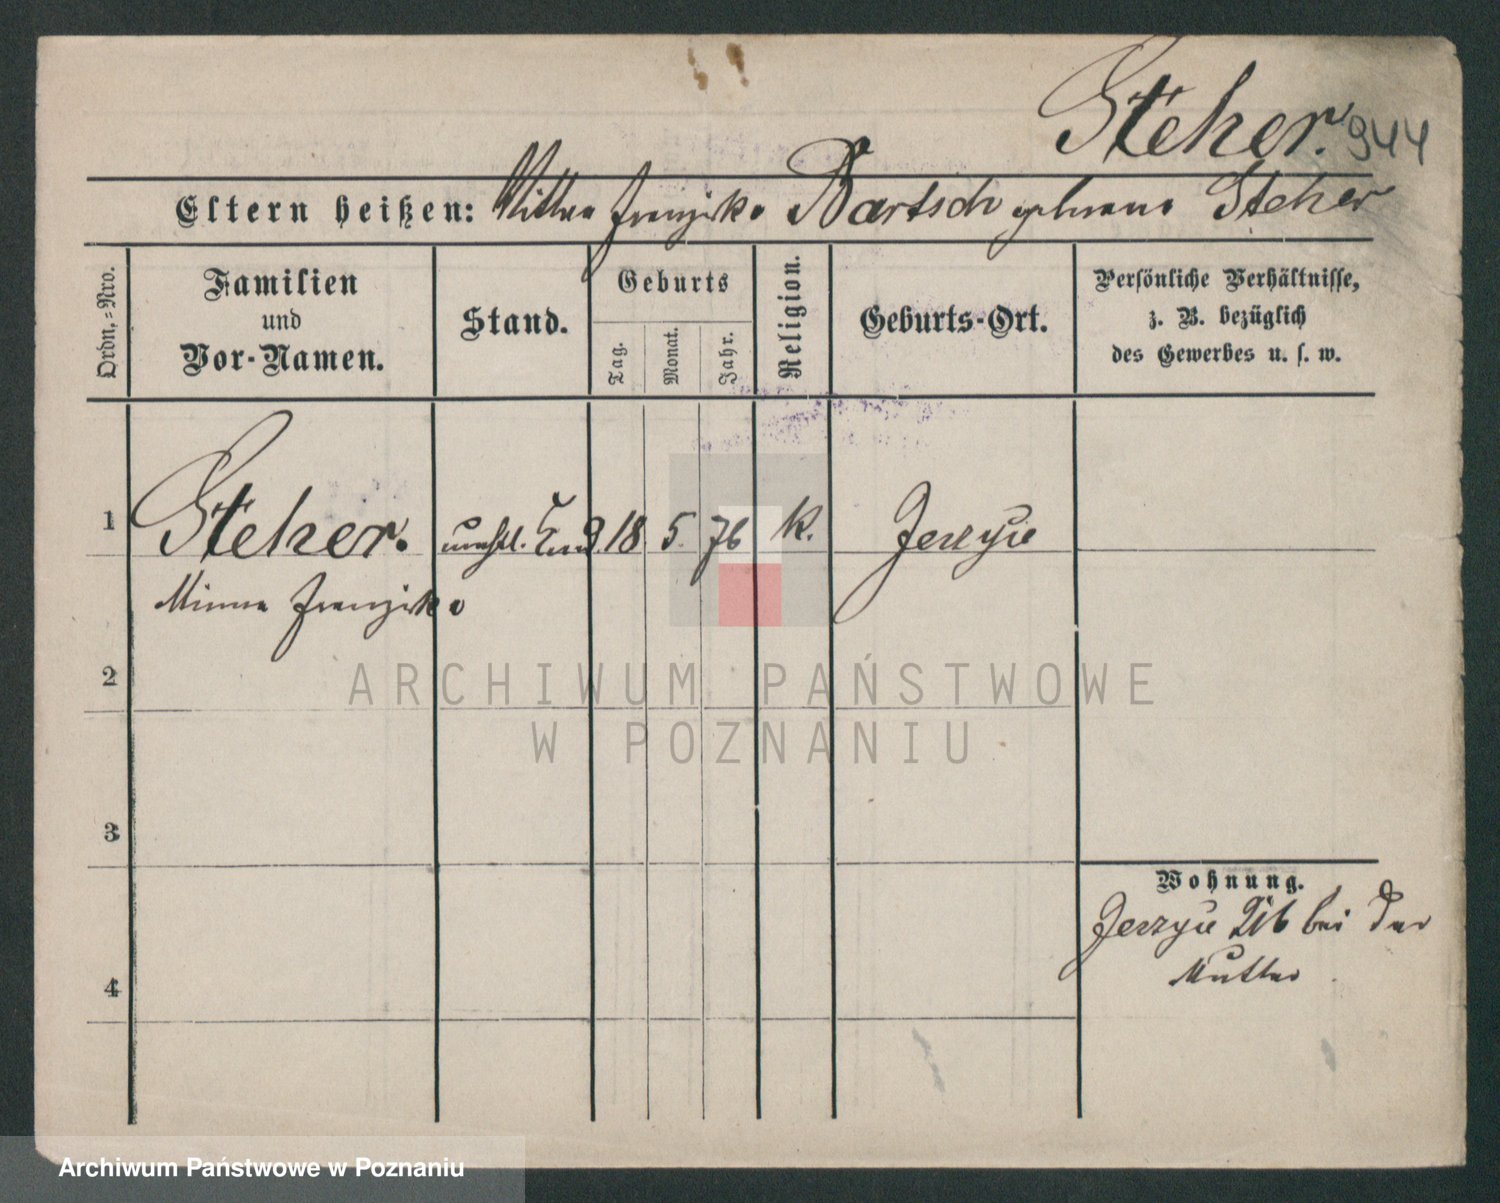 Steher.
944
Eltern heißen: Mutter Franziska Bartsch geborene Steher
Ordn.-Nro.
Familien
und
Vor-Namen.
Stand.
Geburts
Tag.
Monat.
Jahr.
Religion.
Geburts-Ort.
Persönliche Verhältnisse,
z. B. bezüglich
des Gewerbes u. s. w.
1
Steher. unehl. Kind 18 5. 76 k. Jerzyce
Minna Franziska
2
ARCHIWUM PAŃSTWOWE
W POZNANIU
3
Wohnung.
Jerzyce bei der
Mutter
4
Archiwum Państwowe w Poznaniu